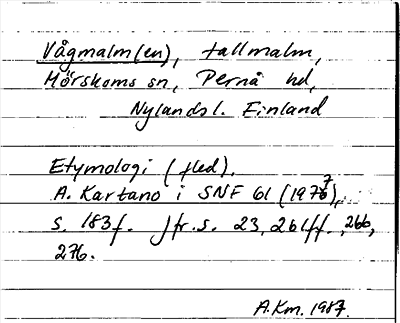 Vågmalm(en), tallmalm,
Mörskoms sn, Pernå hd,
Nylands l. Finland
Etymologi (fled).
A. Kartano i SNF 61 (1977),
s. 183f. Jfr. s. 23, 261ff., 266,
276.
A.Km. 1987.